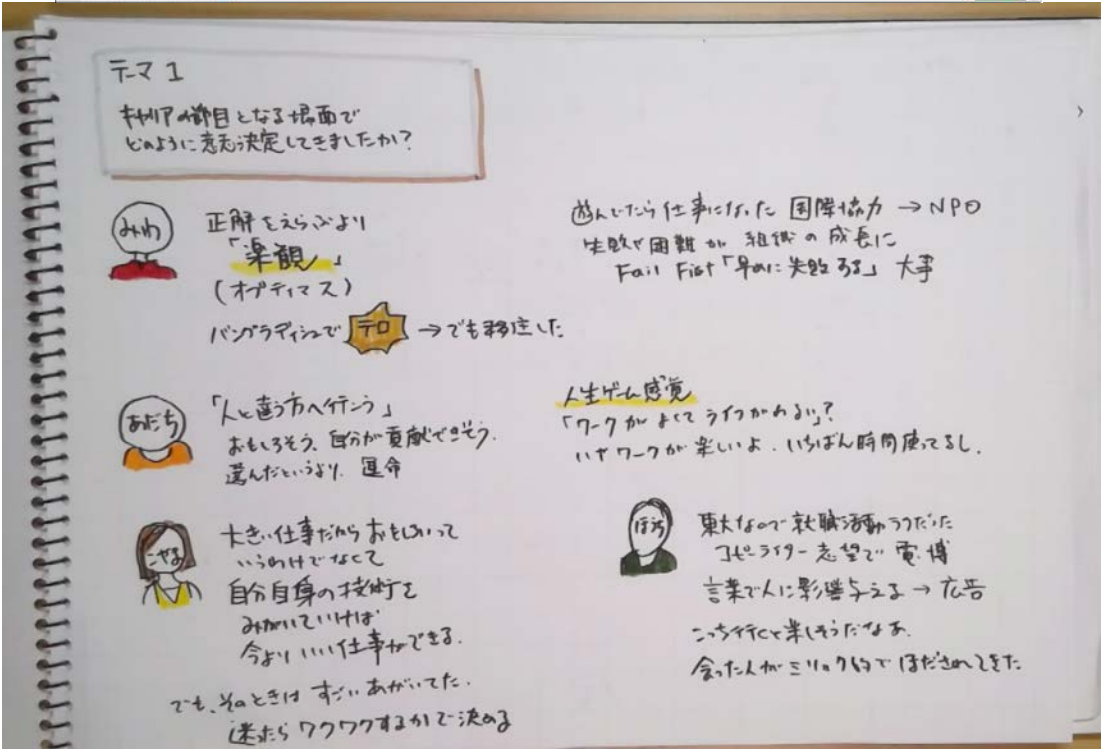 テーマ 1
キャリアの節目となる場面で
どのように意志決定してきましたか?
みわ
正解をえらぶより
「楽観」
(オプティマス)
バングラディシュで テロ →でも移住した
遊んでたら仕事になった 国際協力 → NPO
失敗や困難が 組織の成長に
Fail Fist「早めに失敗する」大事
あだち
「人と違う方へ行こう」
おもしろそう、自分が貢献できそう.
選んだというより、運命
人生ゲーム感覚
「ワークがよくてライフがわるい」?
いやワークが楽しいよ. いちばん時間使ってるし.
こやま
大きい仕事だからおもしろいって
いうわけでなくて
自分自身の技術を
みがいていけば
今よりいい仕事ができる.
でも、そのときは すごいあがいてた.
迷ったら ワクワクするかで決める
東大なので就職活動ラクだった
コピーライター志望で 電・博
言葉で人に影響与える → 広告
こっち行くと楽しそうだなあ.
会った人がミリョク的で ほだされてきた